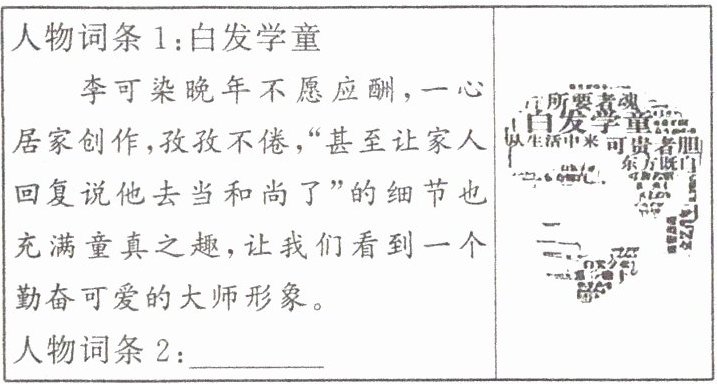 人物词条1:白发学童
李可染晚年不愿应酬,一心
居家创作,孜孜不倦,“甚至让家人
回复说他去当和尚了”的细节也
充满童真之趣,让我们看到一个
勤奋可爱的大师形象。
人物词条2:
所要者魂
白发学童
从生活中来 可贵者胆
东方既白